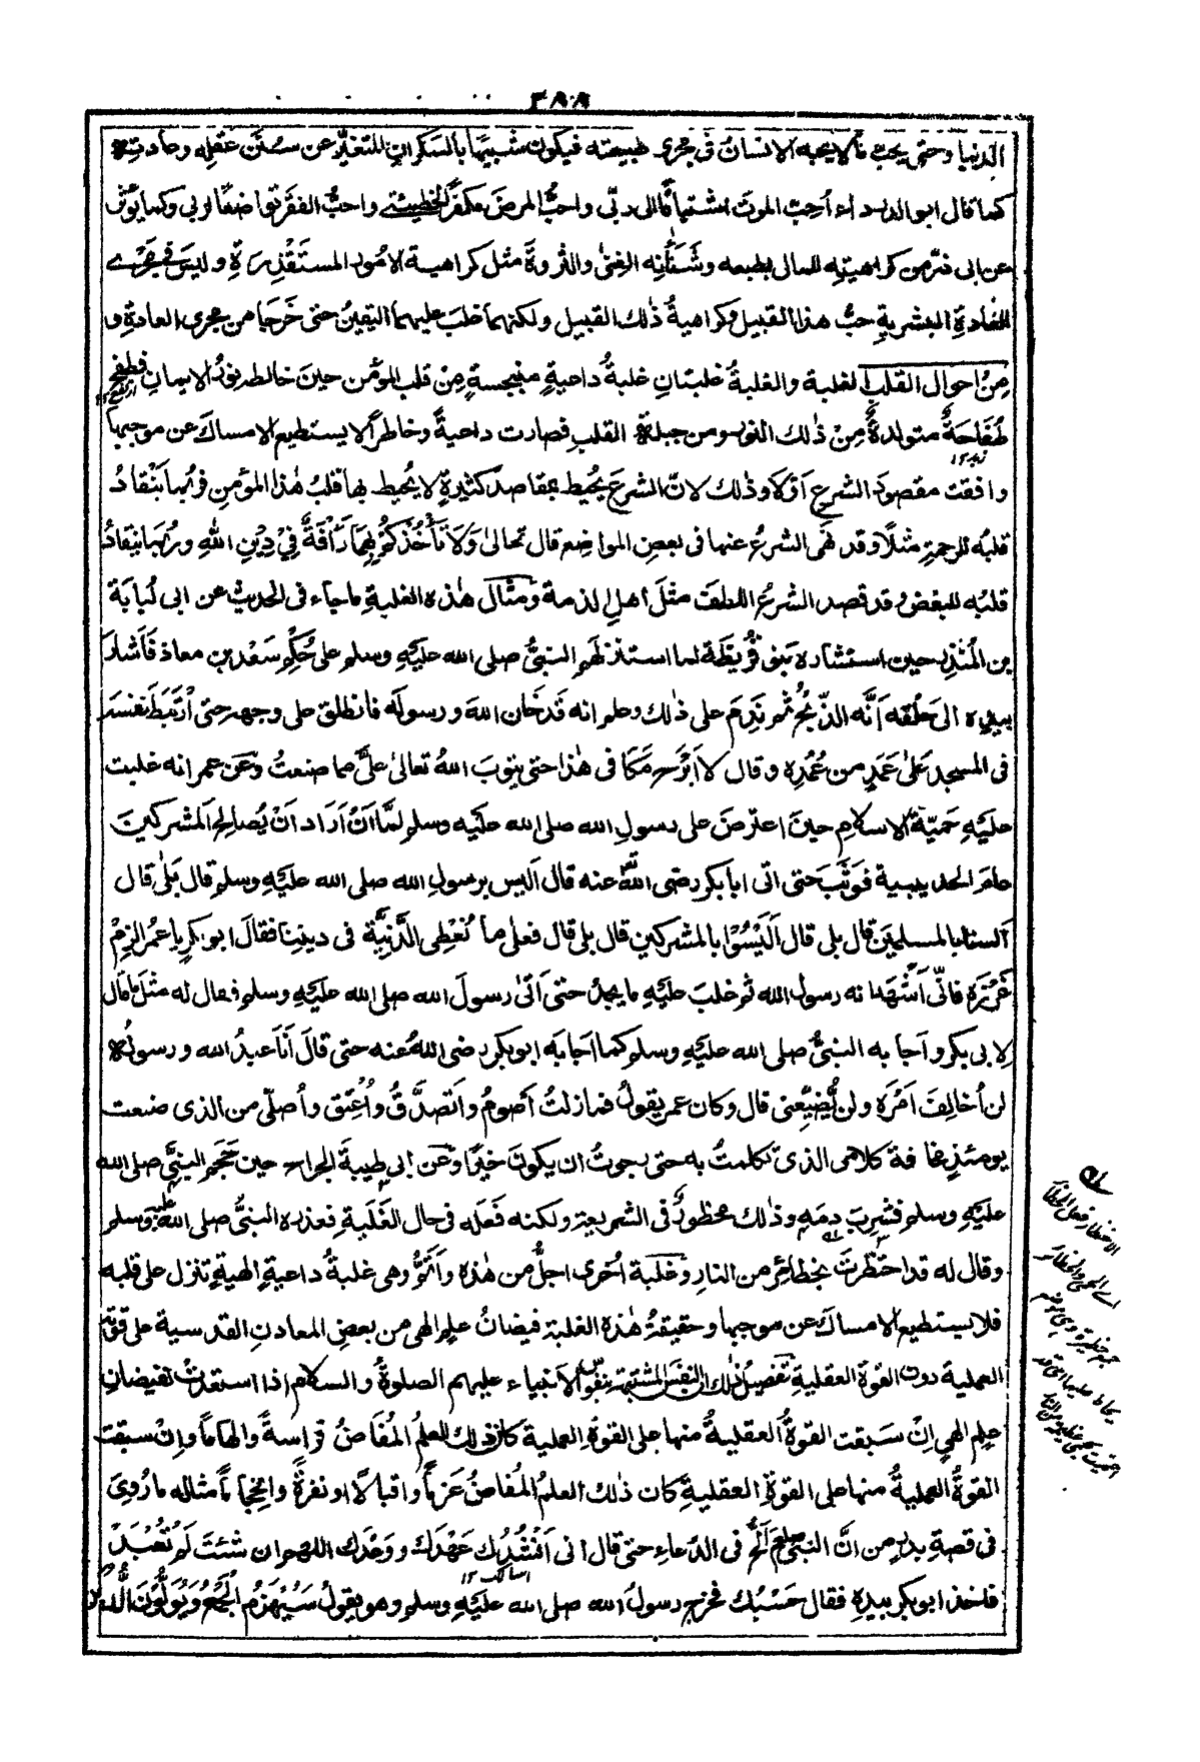 ٣٨٨
الدنيا وحتى يحب ما لا يحبه الانسان فى مجرى طبيعته فيكون شبيها بالسكران المتغيّر عن سُنَن عقله وعادته
كما قال ابو الدرداء أحبّ الموتَ اشتياقًا الى ربّى واحبُّ المرضَ مكفرًا لخطيئتى واحبُّ الفقر تواضعًا لربى وكما يؤثر
عن ابى ذرّ من كراهيتِه للمالى بطبعه وشَنَأنِه الغِنى والثروةَ مثل كراهية الامُور المستقذِرةِ وليس فى مجرى
العادةِ البشريةِ حبُّ هذا القبيل وكراهيةُ ذٰلك القبيل ولكنهما غلبَ عليهما اليقينُ حتى خَرَجَا من مجرى العادةِ و
مِنْ احوالِ القلبِ الغلبة والغلبةُ غلبتانِ غلبةُ داعيةٍ منبجسةٍ مِنْ قلب المؤمن حينَ خالطه نورُ الايمانِ فطفح
طُفَاحَةٌ متولدةٌ مِنْ ذٰلك النور ومن جبلة القلبِ فصارت داعيةً وخاطرًا لا يستطيع الامساكَ عن موجبها
وافقت مقصودَ الشرعِ اَوْ لا وذٰلك لانّ الشرعَ يُحيط بمقاصدَ كثيرةٍ لا يُحيط بها قلبُ هٰذا المؤمنِ فربُما ينْقادُ
قلبُه للرحمةِ مثلًا وقد نهى الشرعُ عنها فى بعضِ المواضع قال تعالىٰ وَلَا تَأْخُذْكُمْ بِهِمَا رَأْفَةٌ فِيْ دِيْنِ اللهِ ورُبّمَا ينقادُ
قلبُه للبغضِ وقد قصد الشرعُ اللطفَ مثلَ اهلِ الذمة ومثالُ هٰذه الغلبةِ ما جاء فى الحديث عن ابى لُبابَة
بنِ المُنْذِرِ حين استشاره بَنو قُريظَة لما استنزلَهم النبىُّ صلى الله عليهِ وسلم على حُكمِ سَعْد بن معاذ فَاَشارَ
بيدِه الى حَلْقه اَنَّه الذّبحُ ثم نَدِمَ على ذٰلك وعلم انه قَد خَان اللهَ ورسولَه فانطلق على وجهه حتى اْرتَبَطَ نفسَه
فى المسجد عَلىٰ عَمَدٍ من عُمُدِه وقال لا اَبْرَح مكانى هٰذا حتى يتوبَ اللهُ تعالىٰ علىَّ مما صنعتُ وعَن عمر انه غلبت
عليَهِ حَميّةُ الاسلامِ حينَ اعترضَ على رسولِ الله صلى الله عليَه وسلم لمّا اَنْ اَرَاد اَنْ يُصالِح المشركينَ
عامَ الحديبية فوَثَبَ حتى اتى ابا بكر رضى اللهُ عنه قال اَليس برسولِ الله صلى الله عليَهِ وسلم قال بَلٰى قال
اَلسنا بالمسلمين قال بلى قال اَلَيْسُوْا بالمشركين قال بلى قال فعلىٰ ما نُعْطِى الدَّنِيَّةَ فى ديننِا فقالَ ابو بكرٍ يا عمرُ الزمْ
غَرْزَه فانّى اَشْهَد انه رسول الله ثم غلبَ عليَهِ ما يجدُ حتى اَتىٰ رسولَ الله صلى الله عليَهِ وسلم فقال له مثلَ ما قال
لِابى بكر واَجابه النبىُّ صلى الله عليَهِ وسلم كما اجَابَه ابو بكر رضى اللهُ عنه حتى قالَ اَنَا عبدُ الله ورسولُه
لن اُخالِفَ اَمْرَه ولن يُضيّعنى قال وكان عمر يقولُ فما زلتُ اَصومُ واَتصدَّقُ واُعْتِق واُصلّى من الذى صنعت
يومئذٍ مخافة كلامى الذى تكلمتُ به حتى رجوتُ ان يكونَ خيرًا وعَن ابى طيبةَ الجراح حين حَجَم النبىَّ صلى الله
عليَهِ وسلم فشرِبَ دمَه وذٰلك محظورٌ فى الشريعةِ ولكنه فَعَله فى حال الغَلَبةِ فعذره النبىُّ صلى اللهُ عليه وسلم
وقال له قد احتظرتَ بحظائِرَ من النارِ وغلبة اُخرى اجلُّ من هٰذه واَتَمُّ وهى غلبةُ داعيةٍ الهيةٍ تنزل على قلبه
فلا يستطيع الامساكَ عن موجبها وحقيقةُ هٰذه الغلبةِ فيضانُ علمٍ الهى من بعضِ المعادنِ القدسية على قوّته
العملية دون القوة العقليةِ تفصيلُ ذٰلك اَنّ النفسَ المتشبّهة بنفوس الاَنبياء عليهم الصلوةُ والسلام اذا استعدتْ لفيضانِ
علم الهىٍ اِنْ سَبقت القوةُ العقليةُ منها على القوةِ العملية كان ذٰلك العلمُ المُفاضُ فراسةً والهامًا واِنْ سبقت
القوةُ العمليةُ منها على القوةِ العقليةِ كان ذٰلك العلمُ المُفاضُ عزمًا واقبالًا او نفرةً وانجماحًا مثاله ما رُوِىَ
فى قصةِ بدرٍ من انَّ النبى صلعم اَلحَّ فى الدّعاءِ حتى قال انى اَنْشُدُك عَهْدَكَ ووَعْدَك اللهم ان شئتَ لَمْ تُعْبَدْ
فاخذ ابو بكر بيدِهِ فقال حَسْبُك فخرج رسولُ الله صلى الله عليَهِ وسلم وهو يقولُ سَيُهْزَمُ الْجَمْعُ وَيُوَلُّونَ الدُّبُرَ